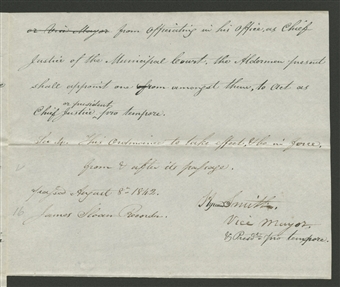 or Vice Mayor from officiating in his office, as Chief
Justice of the Municipal Court, the Aldermen present
shall appoint one from amongst them, to act as
or president,
Chief Justice, pro tempore.
Sec 4. This Ordinance to take effect, & be in force,
from & after its passage.
Passed August 8th 1842.
James Sloan Recorder.
Hyrum Smith.
Vice Mayor.
& Presdt. pro tempore.